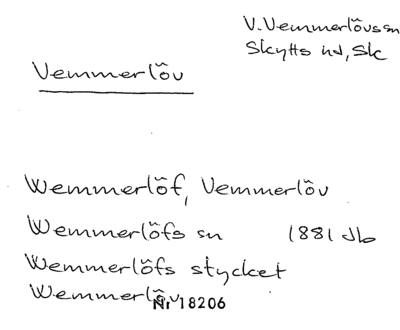 V. Vemmerlövs sn
Skytts hd, Sk
Vemmerlöv
Wemmerlöf, Vemmerlöv
Wemmerlöfs sn 1881 Jb
Wemmerlöfs stycket
Wemmerlöv
Nr 18206